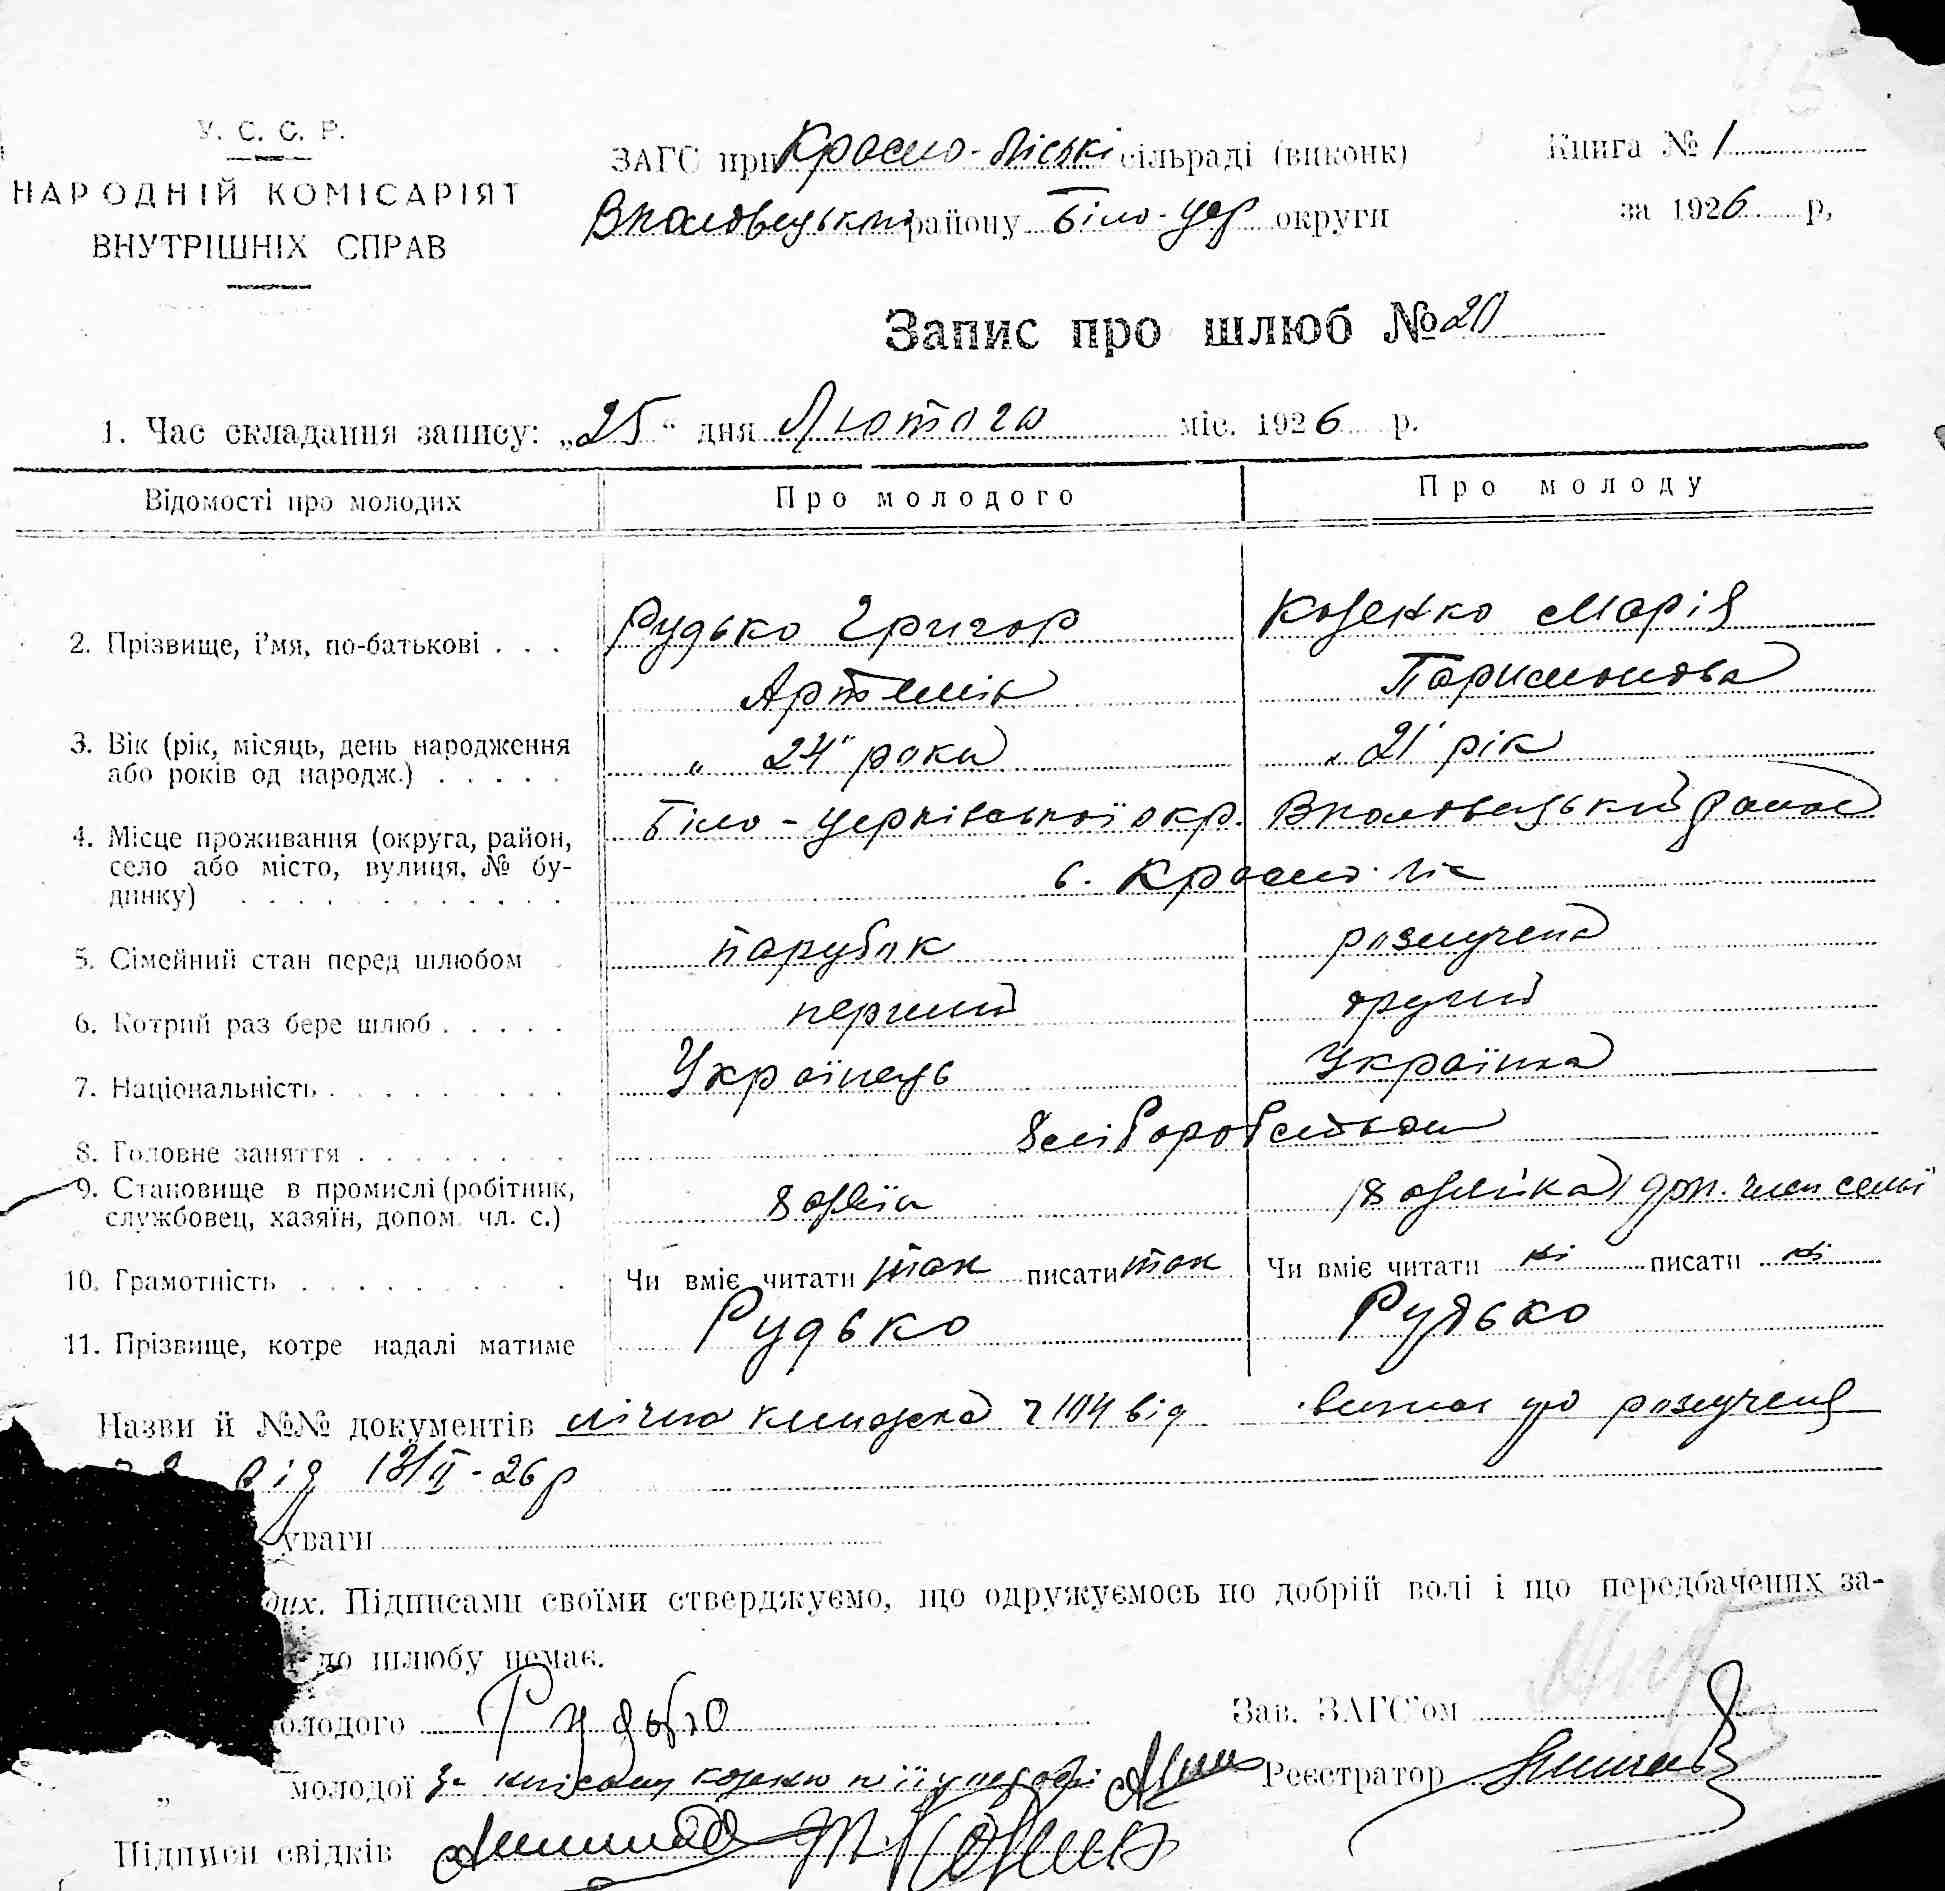 У. С. С. Р.
НАРОДНІЙ КОМІСАРІЯТ
ВНУТРІШНІХ СПРАВ
ЗАГС при Красно-Ліські сільраді (виконк)
району Біло-Цер округи
Книга № 1
за 1926 р,
Запис про шлюб № 20
1. Час складання запису: „25" дня Лютого міс. 1926 р.
Відомості про молодих Про молодого Про молоду
2. Прізвище, і'мя, по-батькові . . . Рудько Григор Козенко Марія
Артемів Паримонова
3. Вік (рік, місяць, день народження
або років од народж.) . . . . . „ 24" роки „ 21" рік
4. Місце проживання (округа, район,
село або місто, вулиця, № бу-
динку) . . . . . . . . . . . .
Біло-Церківської окр.
с. Красно-ліс
5. Сімейний стан перед шлюбом парубок розлучена
6. Котрий раз бере шлюб . . . . . перший другий
7. Національність . . . . . . . . . Українець Українка
8. Головне заняття . . . . . . . .
9. Становище в промислі (робітник,
службовец, хазяїн, допом. чл. с.) хазяїн доп. член семї
10. Грамотність . . . . . . . . . Чи вміє читати так писати так Чи вміє читати ні писати ні
11. Прізвище, котре надалі матиме Рудько Рудько
Назви й №№ документів лічна книжка від про розлучення
від 13/II-26р
уваги
дих. Підписами своїми стверджуємо, що одружуємось по добрій волі і що передбачених за-
до шлюбу немає.
олодого Рудько Зав. ЗАГС'ом
„ молодої Реєстратор
Підписи свідків